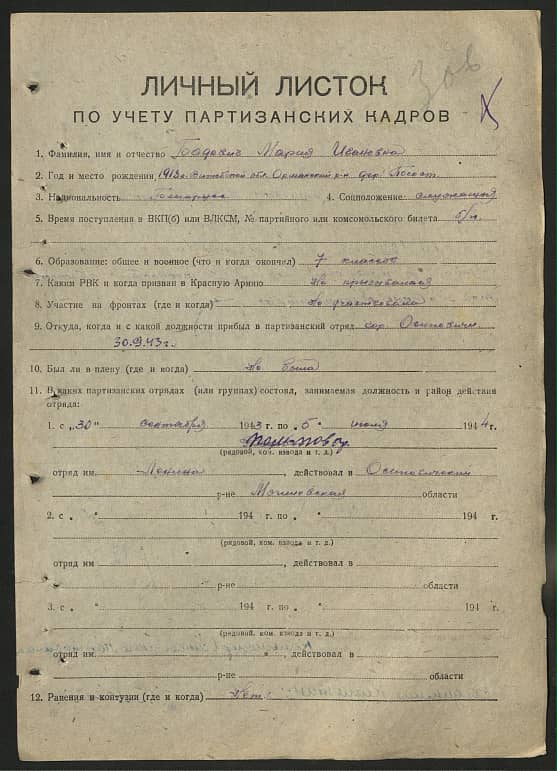 ЛИЧНЫЙ ЛИСТОК
ПО УЧЕТУ ПАРТИЗАНСКИХ КАДРОВ
1. Фамилия, имя и отчество Мария Ивановна
2. Год и место рождения 1913 г. Витебской обл. Оршанский р-н дер.
3. Национальность 4. Соцположение служащая
5. Время поступления в ВКП(б) или ВЛКСМ, № партийного или комсомольского билета б/п.
6. Образование: общее и военное (что и когда окончил) 7 классов
7. Каким РВК и когда призван в Красную Армию Не призывалась
8. Участие на фронтах (где и когда) Не участвовала
9. Откуда, когда и с какой должности прибыл в партизанский отряд гор. Осиповичи
30.9.43 г.
10. Был ли в плену (где и когда) Не была
11. В каких партизанских отрядах (или группах) состоял, занимаемая должность и район действия
отряда:
1. с „30" сентября 1943 г. по „5" июля 1944 г.
(рядовой, ком. взвода и т. д.)
отряд им. Ленина, действовал в Осиповичский
р-не Могилевская области
2. с „ " 194 г. по „ " 194 г.
(рядовой, ком. взвода и т. д.)
отряд им , действовал в
р-не области
3. с „ " 194 г. по „ " 194 г.
(рядовой, ком. взвода и т. д.)
отряд им. , действовал в
р-не области
12. Ранения и контузии (где и когда) Нет.